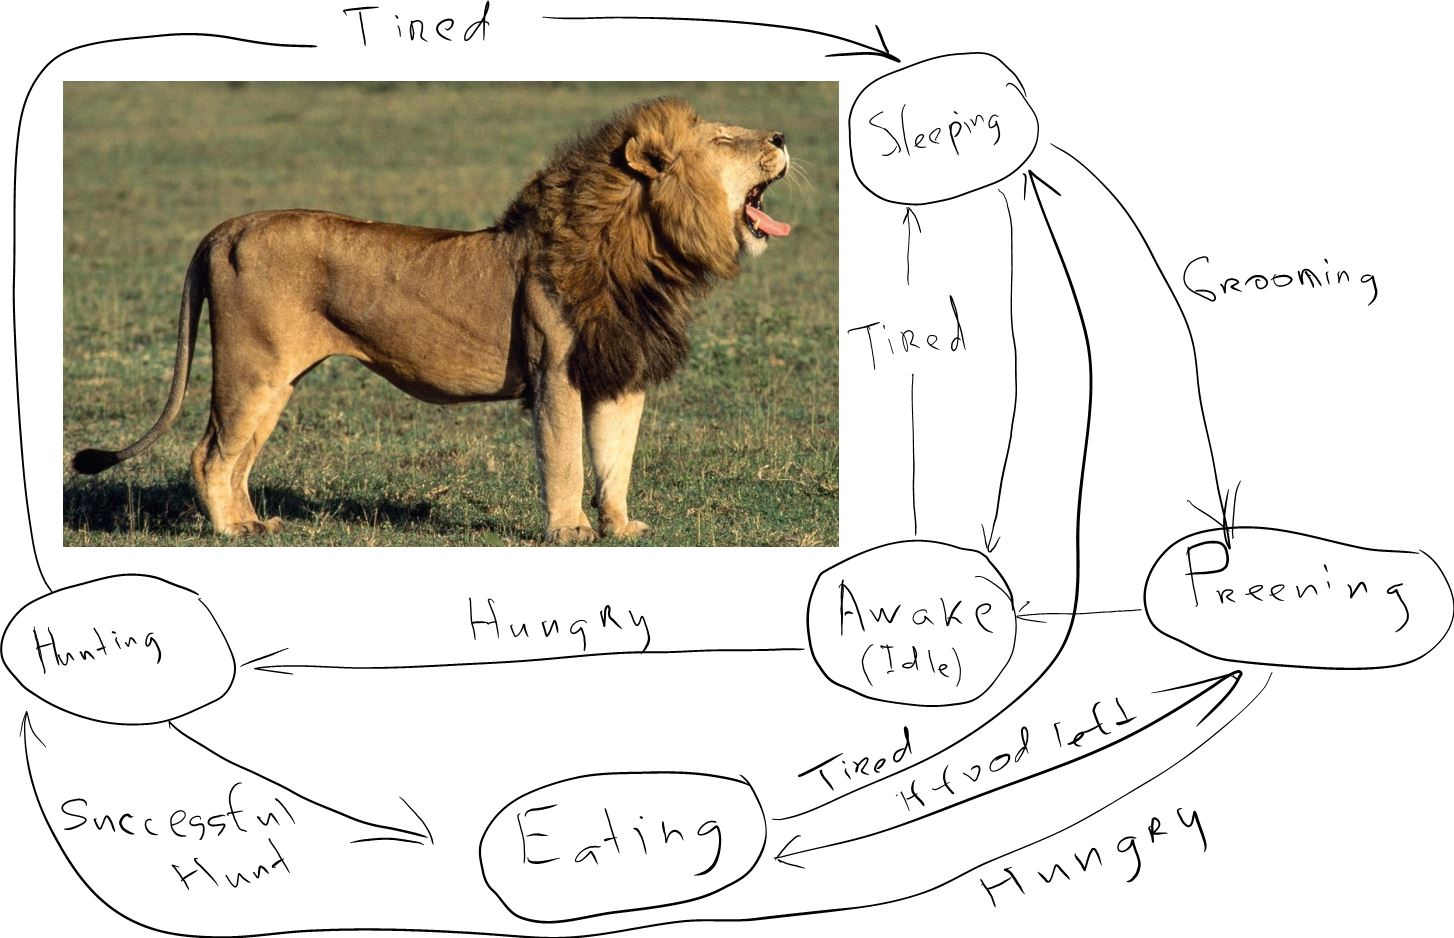 Tired
Sleeping
Grooming
Tired
Preening
Awake
(Idle)
Hungry
Hunting
Tired
If food left
Successful
Hunt
Eating
Hungry